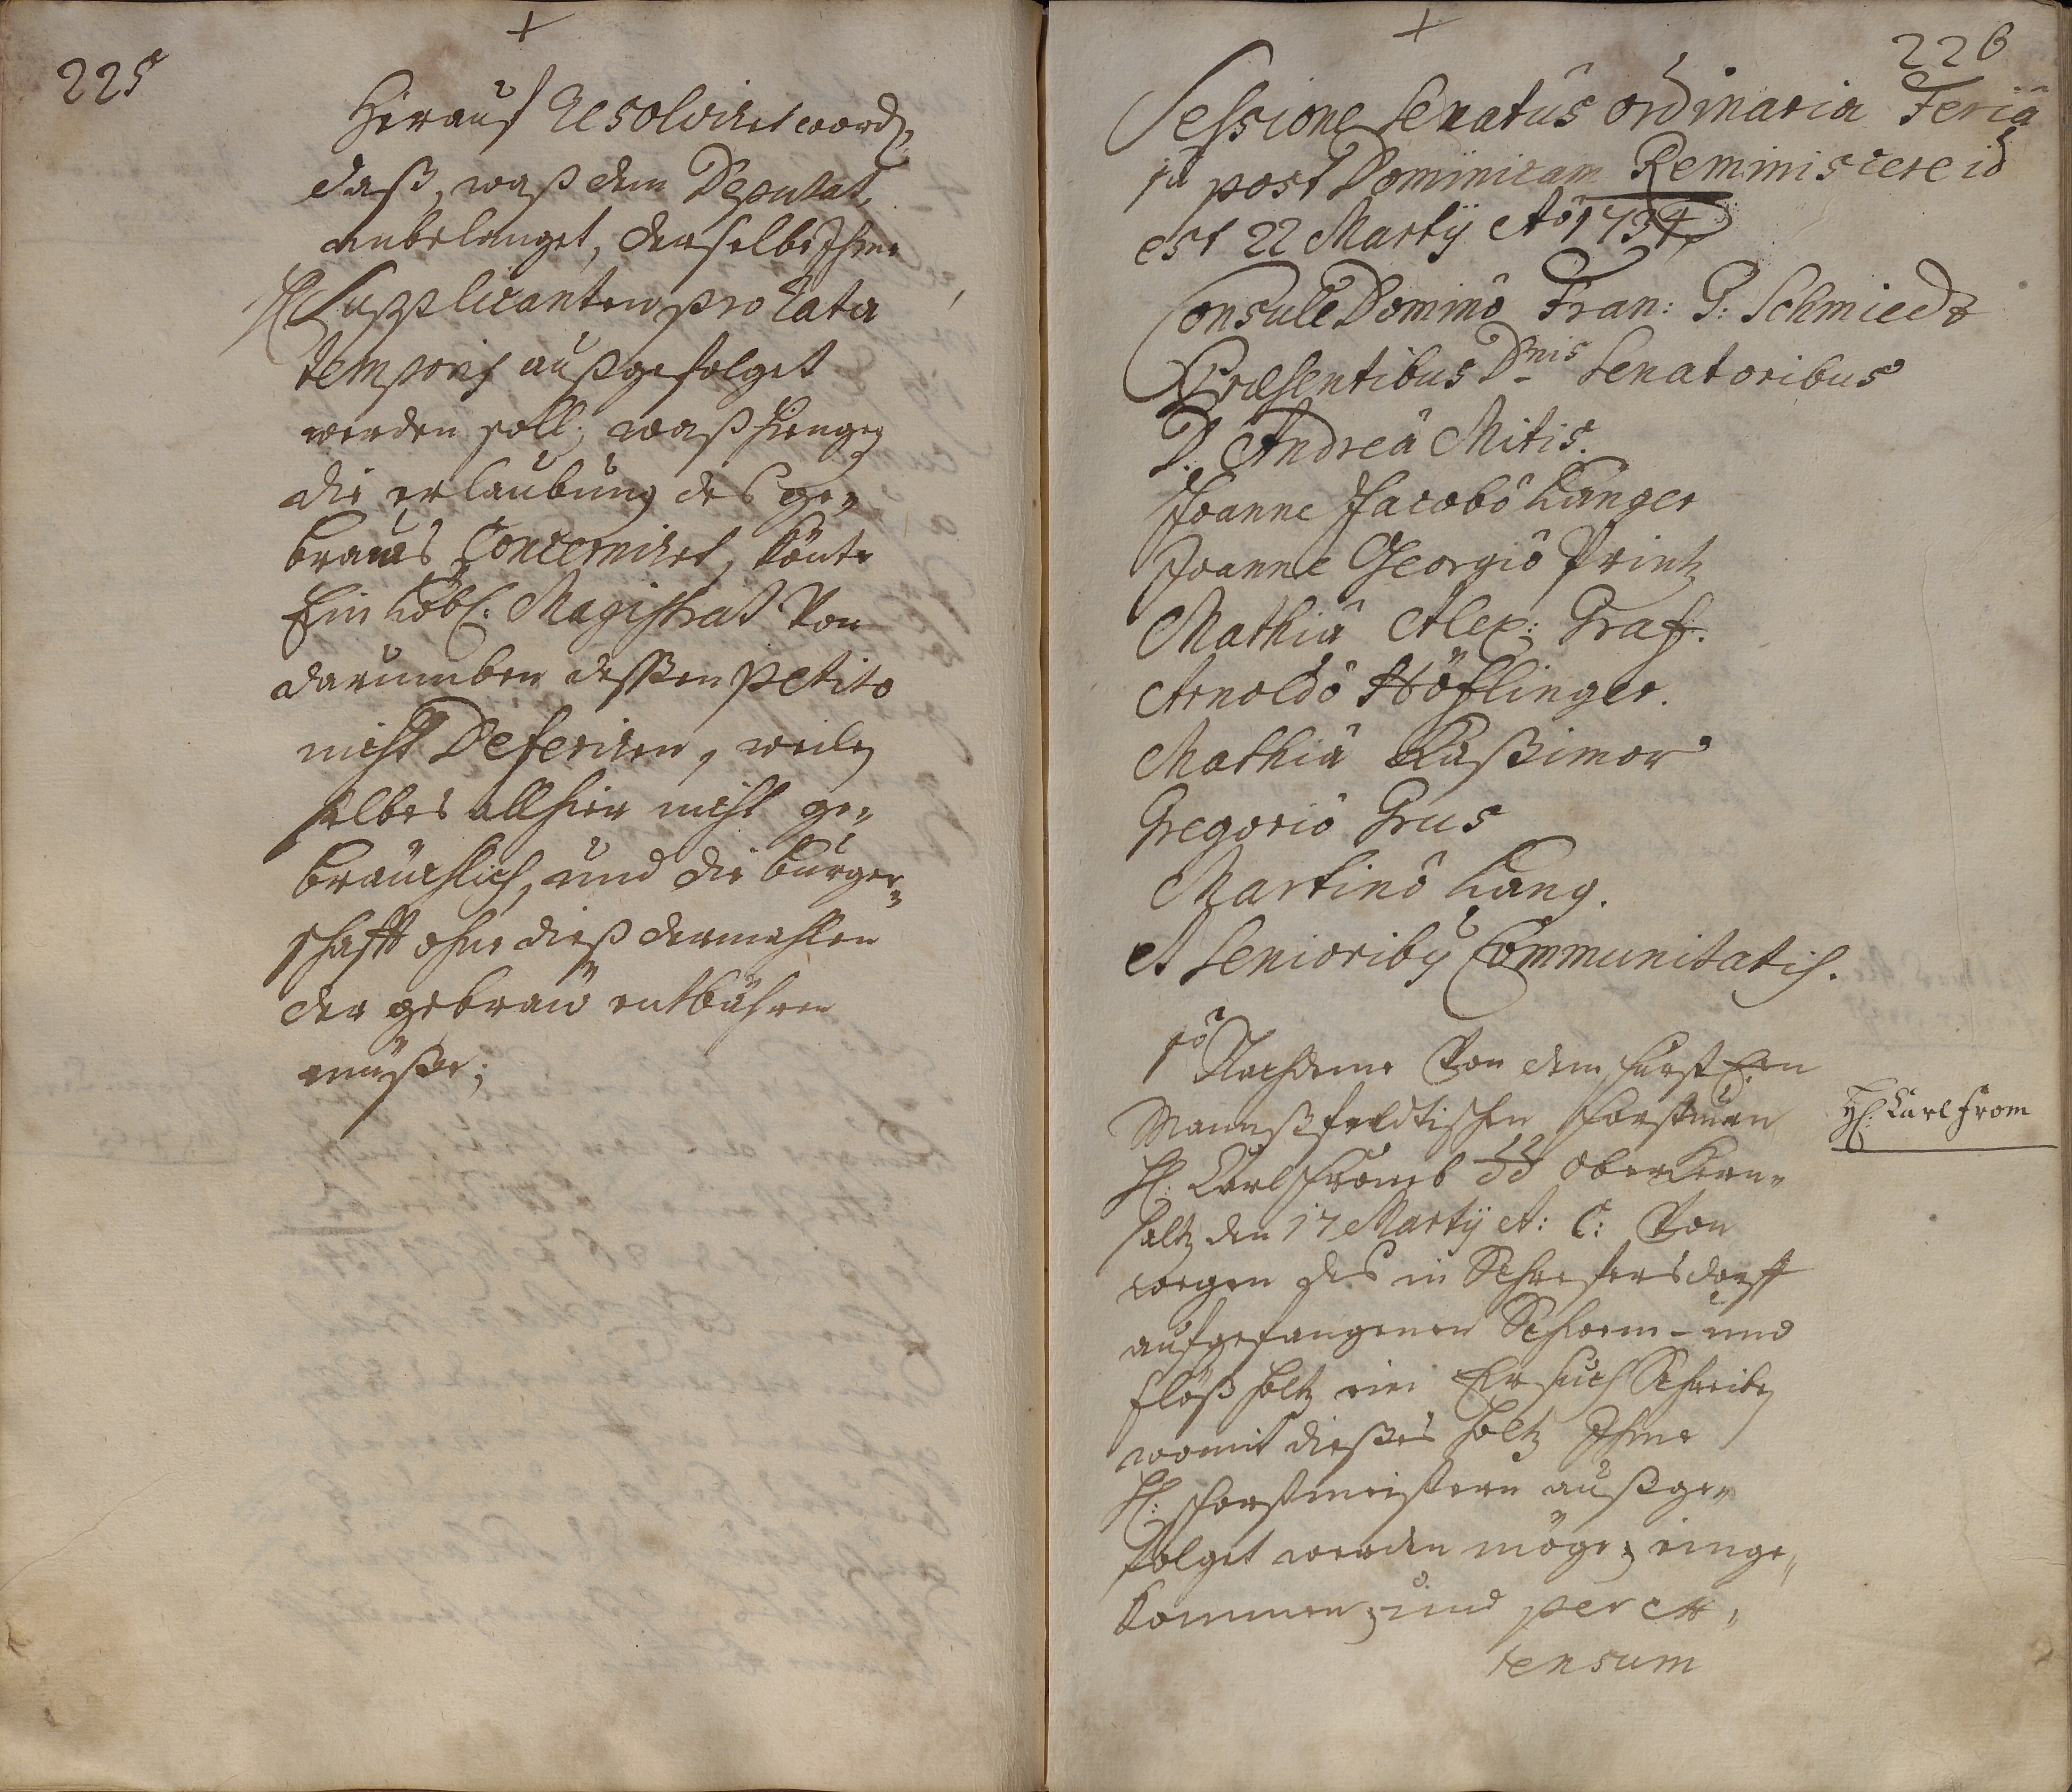 225
Hierauf Resolviret word:
daß, waß den Deputat
anbelanget, derselbe Ihme
H: Supplicanten pro rata
temporis außgefolget
werden soll; waß hingeg:
die erlaubung des ge„
braus Concerniret, könte
Ein Löbl. Magistrat Von
darumben dessen petito
nicht Deferiren, weil:
selbes allhier nicht ge„
bräuchlich, und die burger„
schafft ohne dieß dermahlen
der gebräu entbähren
müße;
226
Sessione Senatûs ordinaria Feriâ
2dâ post Dominicam Reminiscere id
est 22 Martÿ Aô 1734
Consule Dominô Fran: P: Schmiedt
Præsentibus Dnis Senatoribus
D. Andreâ Mitis.
Joanne Jacobô Langer
Joanne Georgiô Printz
Mathiâ Alex: Graf.
Arnoldô Höflinger.
Mathiâ Kaßimor
Gregoriô Grus
Martinô Lang.
et Senioriby Communitatis.
1mô Nachdeme Von dem fürst E:en
Mannßfeldtischen Forstmein
H: Carl Fromb dd Oberkern„
saltz den 17 Martÿ A: C: Von
wegen des in Schrefersdorff
aufgefangenen Schwem- und
flöß holtz ein Ersuch Schreib:
womit dießes holtz Ihme
H: Forstmeistern außge„
folget werden möge; einge„
kommen; und per ex„
tensum
H: Carl From